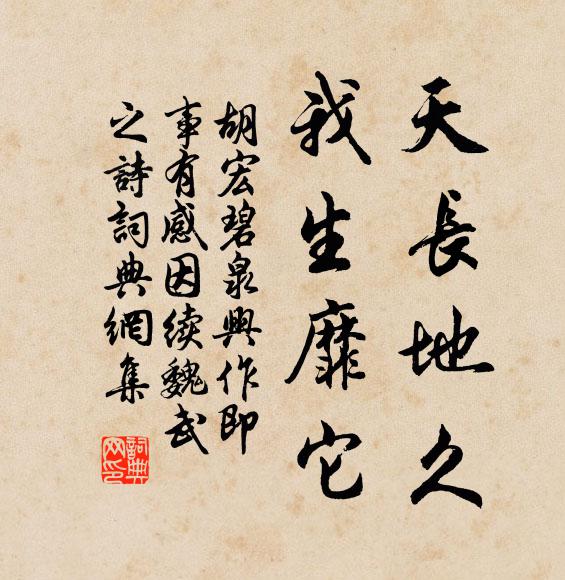 天長地久
我生靡它
胡宏碧泉興作即
事有感因續魏武
之詩詞典網集
詞典
网印